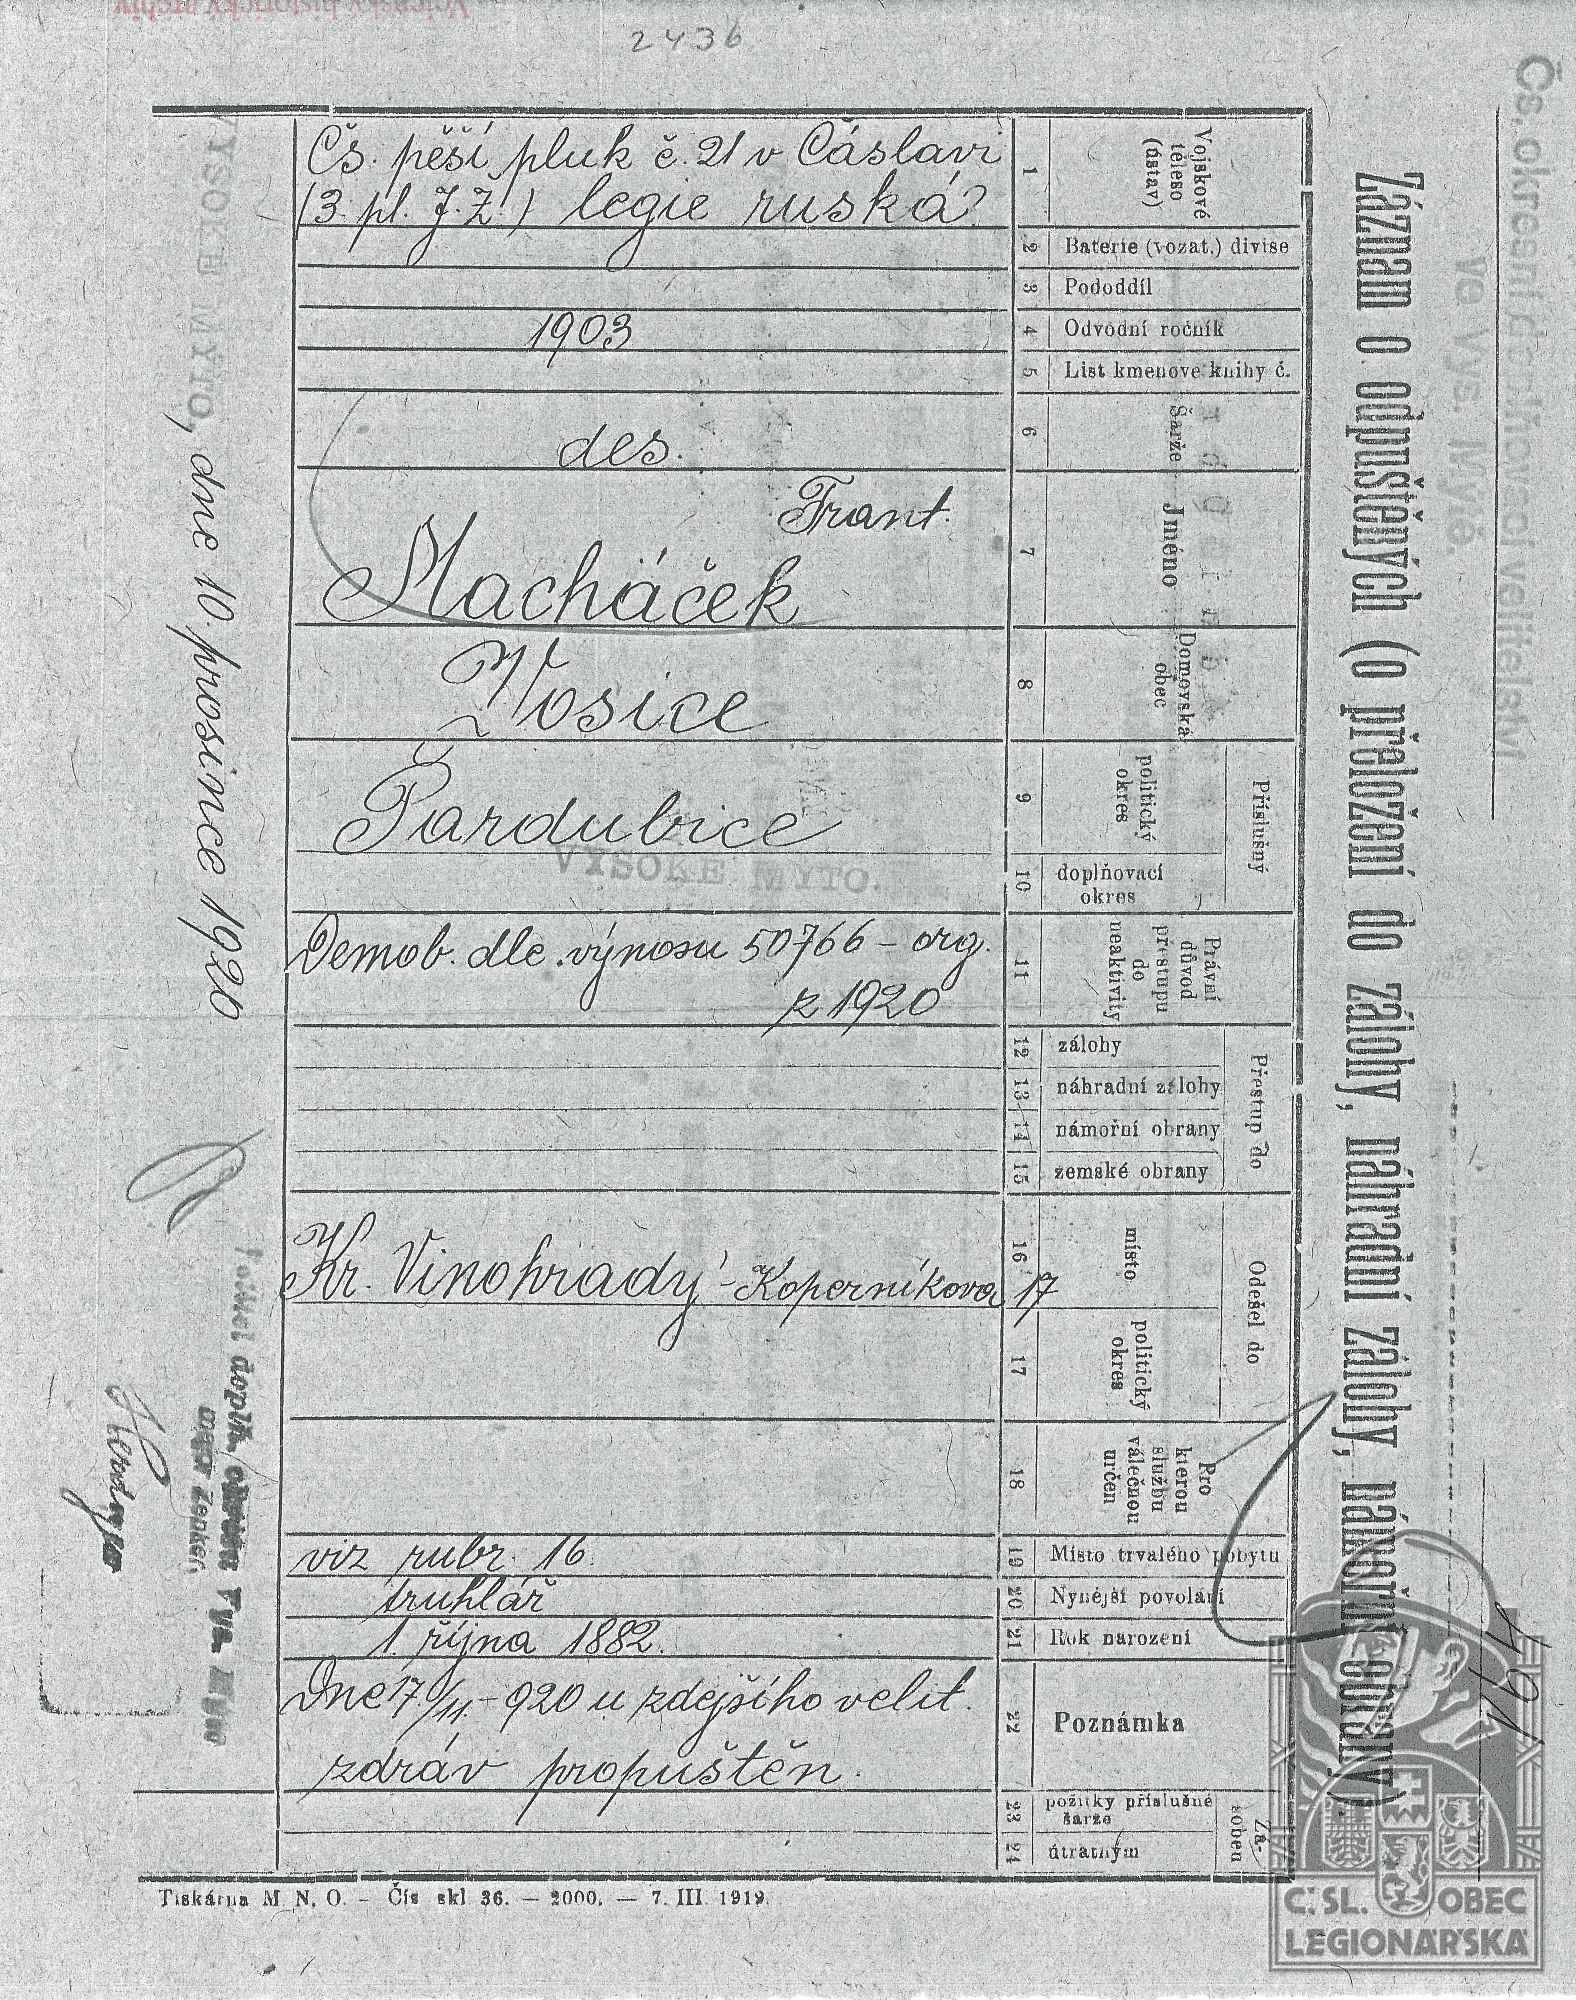 2436
Čs. okresní doplňovací velitelství
ve Vys. Mýtě.
491
Záznam o odpuštěných (o přeložení do zálohy, náhradní zálohy, námořní obrany).
1 Vojskové těleso (ústav)
Čs. pěší pluk č. 21 v Čáslavi
(3. pl. J. Ž.) legie ruská
2 Baterie (vozat.) divise
3 Pododdíl
4 Odvodní ročník
1903
5 List kmenové knihy č.
6 Šarže
des.
7 Jméno
Frant.
Macháček
8 Domovská obec
Vosice
Příslušný
9 politický okres
Pardubice
10 doplňovací okres
VYSOKÉ MÝTO.
11 Právní důvod přestupu do neaktivity
Demob. dle výnosu 50766 – org.
z 1920
Přestup do
12 zálohy
13 náhradní zálohy
14 námořní obrany
15 zemské obrany
Odešel do
16 místo
Kr. Vinohrady – Koperníkova 17
17 politický okres
18 Pro kterou službu válečnou určen
19 Místo trvalého pobytu
viz rubr. 16.
20 Nynější povolání
truhlář
21 Rok narození
1. října 1882.
22 Poznámka
Dne 17/11. – 920 u zdejšího velit.
zdráv propuštěn.
Zásoben
23 požitky příslušné šarže
24 útratným
VYSOKÉ MÝTO, dne 10. prosince 1920
Tiskárna M. N. O. – Čís. skl 36. – 2000. – 7. III 1919.
Č. SL. OBEC
LEGIONÁŘSKÁ